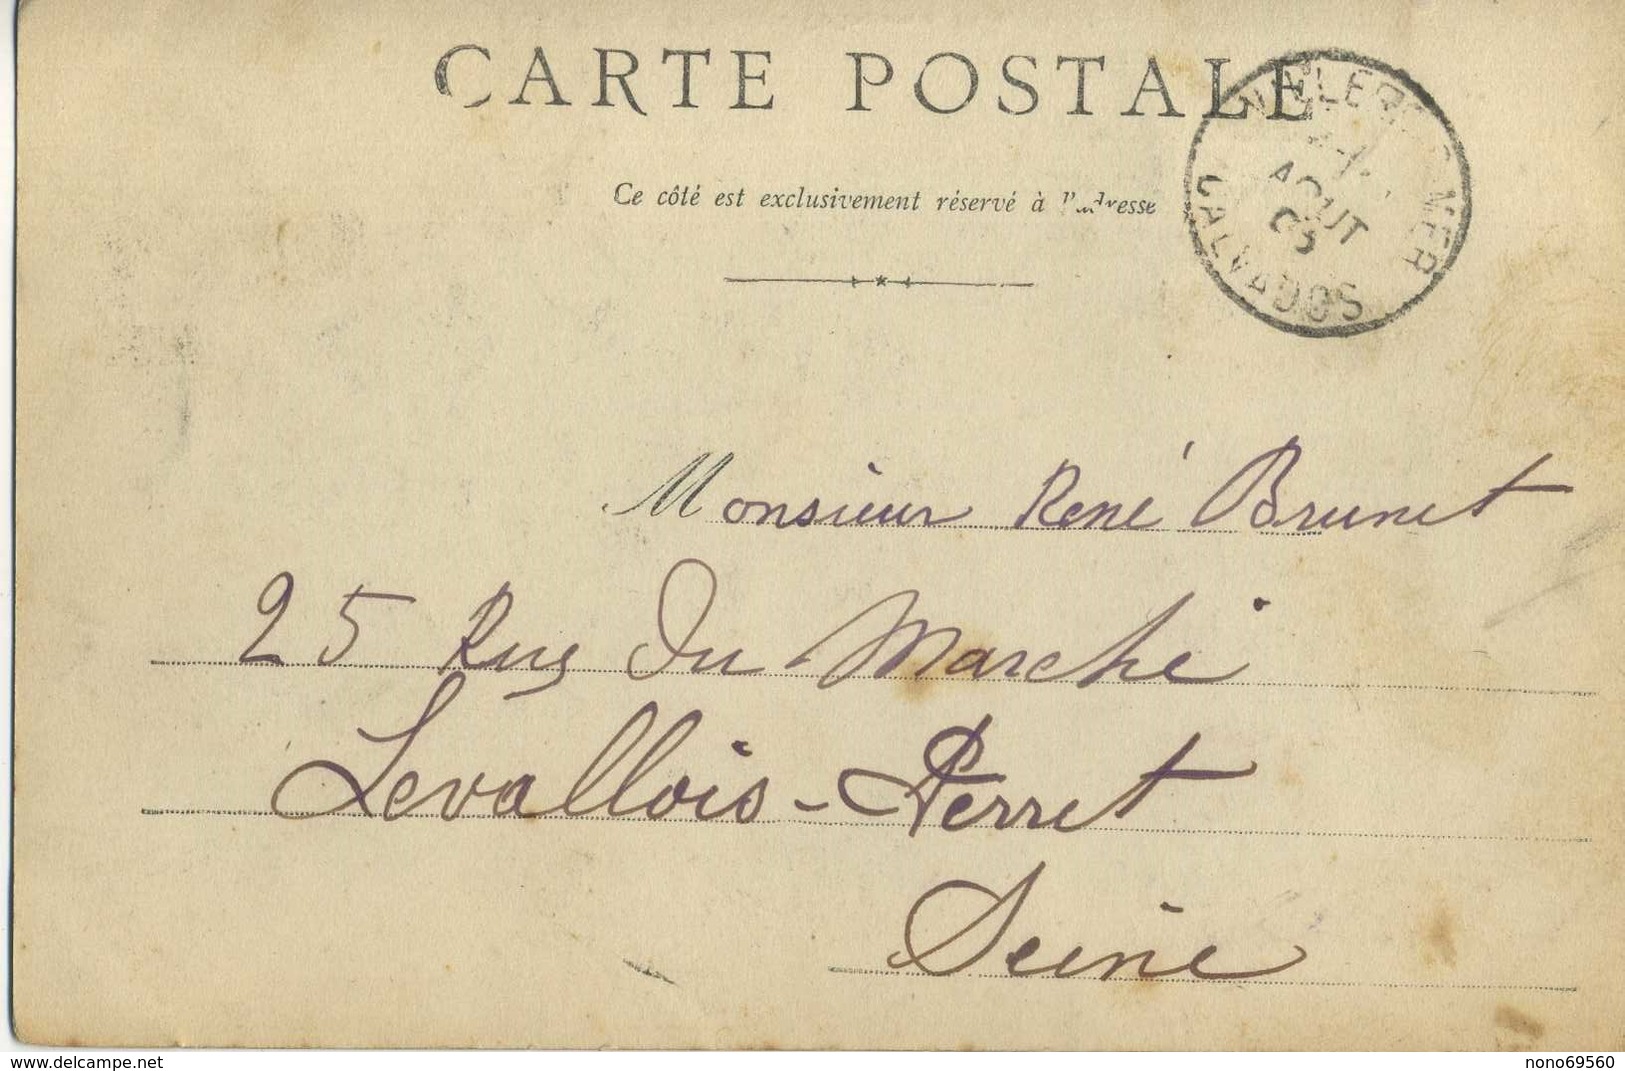 CARTE POSTALE
Ce côté est exclusivement réservé à l'adresse
VILLERS S MER
AOUT
05
CALVADOS
Monsieur René Brunet
25 Rue Du Marché
Levallois-Perret
Seine
www.delcampe.net
nono69560